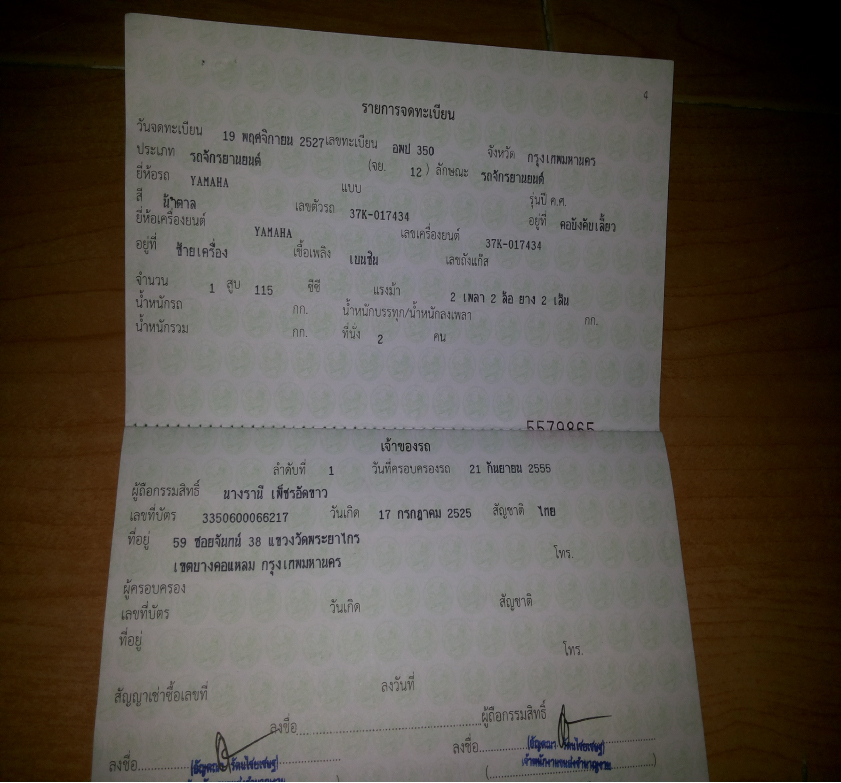 4
รายการจดทะเบียน
วันจดทะเบียน 19 พฤศจิกายน 2527 เลขทะเบียน อพป 350 จังหวัด กรุงเทพมหานคร
ประเภท รถจักรยานยนต์ (จย. 12) ลักษณะ รถจักรยานยนต์
ยี่ห้อรถ YAMAHA แบบ รุ่นปี ค.ศ.
สี น้ำตาล เลขตัวรถ 37K-017434 อยู่ที่ คอบังคับเลี้ยว
ยี่ห้อเครื่องยนต์ YAMAHA เลขเครื่องยนต์ 37K-017434
อยู่ที่ ซ้ายเครื่อง เชื้อเพลิง เบนซิน เลขถังแก๊ส
จำนวน 1 สูบ 115 ซีซี แรงม้า 2 เพลา 2 ล้อ ยาง 2 เส้น
น้ำหนักรถ กก. น้ำหนักบรรทุก/น้ำหนักลงเพลา กก.
น้ำหนักรวม กก. ที่นั่ง 2 คน
5579865
เจ้าของรถ
ลำดับที่ 1 วันที่ครอบครองรถ 21 กันยายน 2555
ผู้ถือกรรมสิทธิ์ นางรานี เพ็ชรอัดขาว
เลขที่บัตร 3350600066217 วันเกิด 17 กรกฎาคม 2525 สัญชาติ ไทย
ที่อยู่ 59 ซอยจันทน์ 38 แขวงวัดพระยาไกร
เขตบางคอแหลม กรุงเทพมหานคร โทร.
ผู้ครอบครอง
เลขที่บัตร วันเกิด สัญชาติ
ที่อยู่
โทร.
สัญญาเช่าซื้อเลขที่ ลงวันที่
ลงชื่อ ผู้ถือกรรมสิทธิ์
ลงชื่อ ลงชื่อ